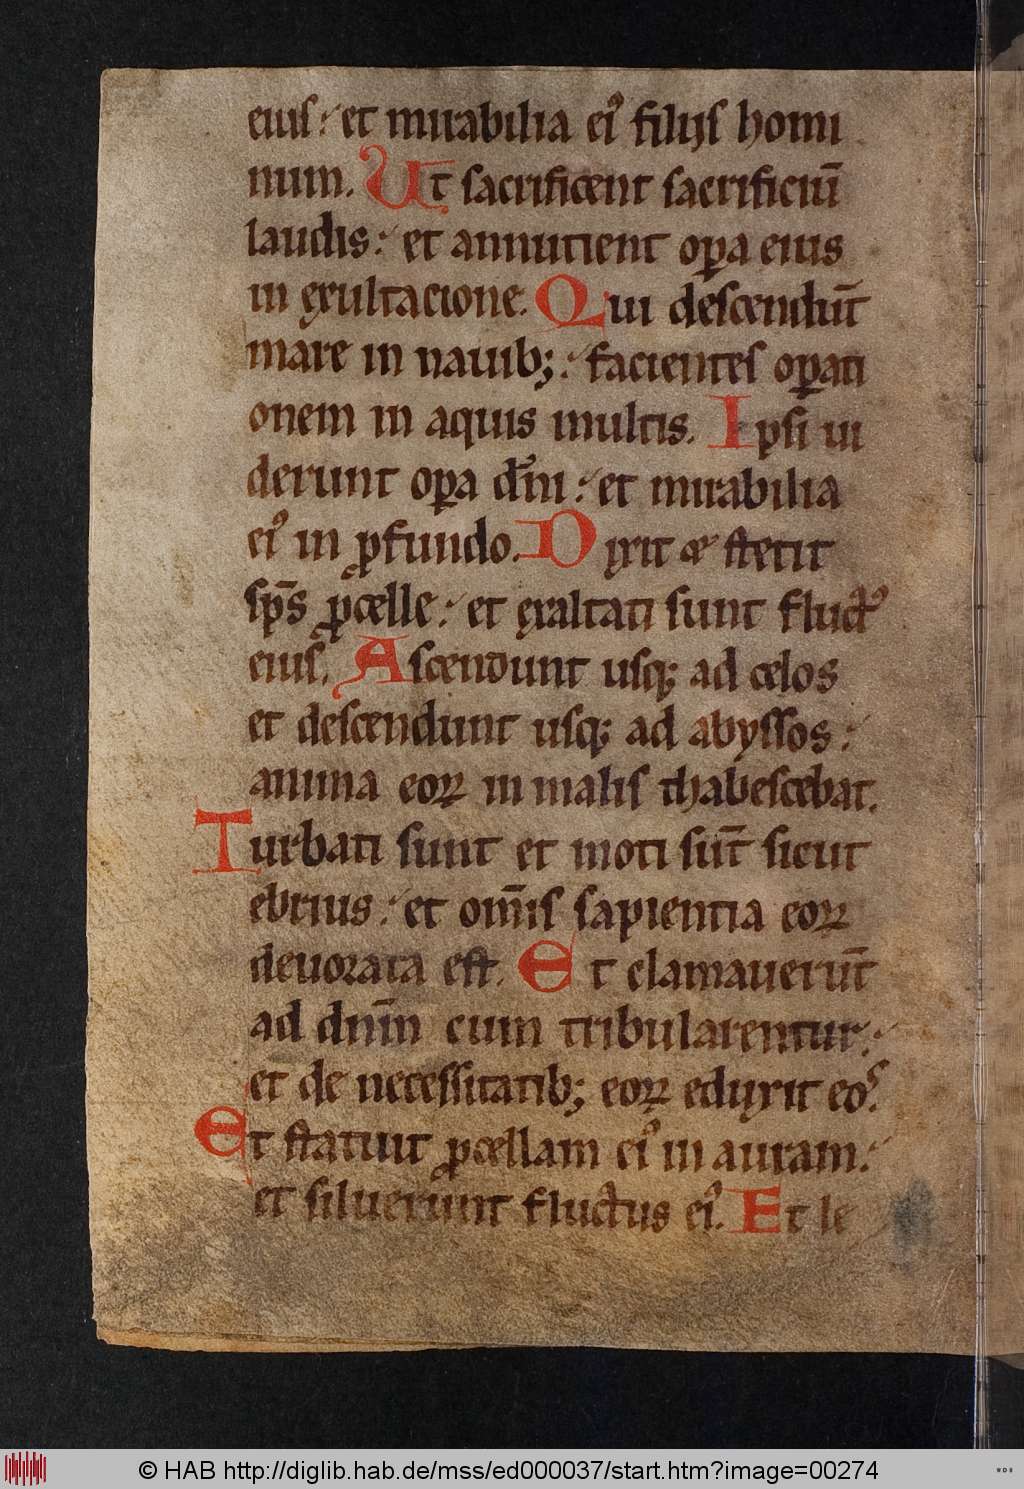 eius : et mirabilia eiꝰ filijs homi
num. Ut sacrificent sacrificiū
laudis : et annutient oꝑa eius
in exultacione. Qui descendūt
mare in nauibꝫ : facientes oꝑati
onem in aquis multis. Ipsi ui
derunt oꝑa dn̄i : et mirabilia
eiꝰ in ꝓfundo. Dixit & stetit
sp̄s ꝓcelle : et exaltati sunt fluctꝰ
eius. Ascendunt usqꝫ ad celos
et descendunt usqꝫ ad abyssos :
anima eoꝝ in malis thabescebat.
Turbati sunt et moti sūt sicut
ebrius : et om̄is sapientia eoꝝ
deuorata est. Et clamauerūt
ad dn̄m cum tribularentur :
et de necessitatibꝫ eoꝝ eduxit eos.
Et statuit ꝓcellam eiꝰ in auram :
et siluerunt fluctus eiꝰ. Et le
© HAB http://diglib.hab.de/mss/ed000037/start.htm?image=00274